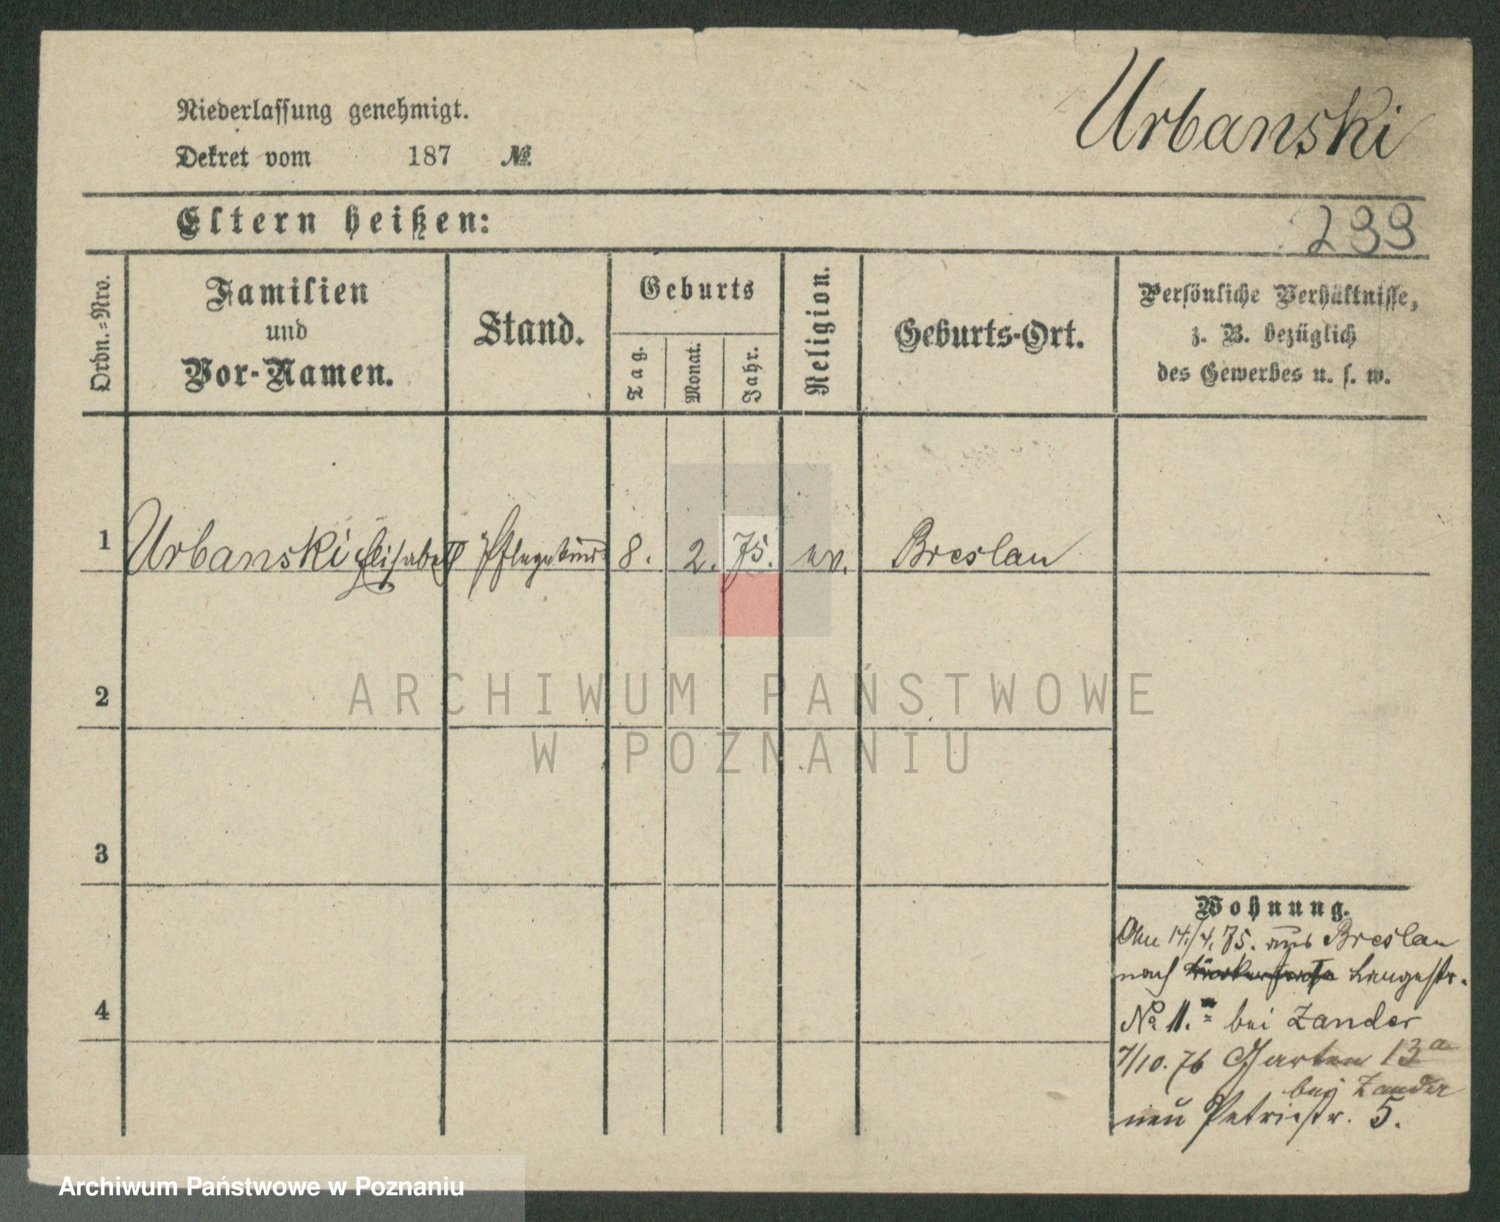 Urbanski
Niederlassung genehmigt.
Dekret vom 187 №
Eltern heißen:
299
Ordn.=Nro.
Familien
und
Vor-Namen.
Stand.
Geburts
Tag.
Monat.
Jahr.
Religion.
Geburts-Ort.
Persönliche Verhältnisse,
z. B. bezüglich
des Gewerbes u. s. w.
1 Urbanski Elisabeth Pflegekind 8. 2. 75. ev. Breslau
2
3
4
ARCHIWUM PAŃSTWOWE
W POZNANIU
Wohnung.
14./4. 75. aus Breslau
nach Langestr.
No 11. bei Zander
7/10. 76 Garten 13a
bei Zander
neu Petristr. 5.
Archiwum Państwowe w Poznaniu